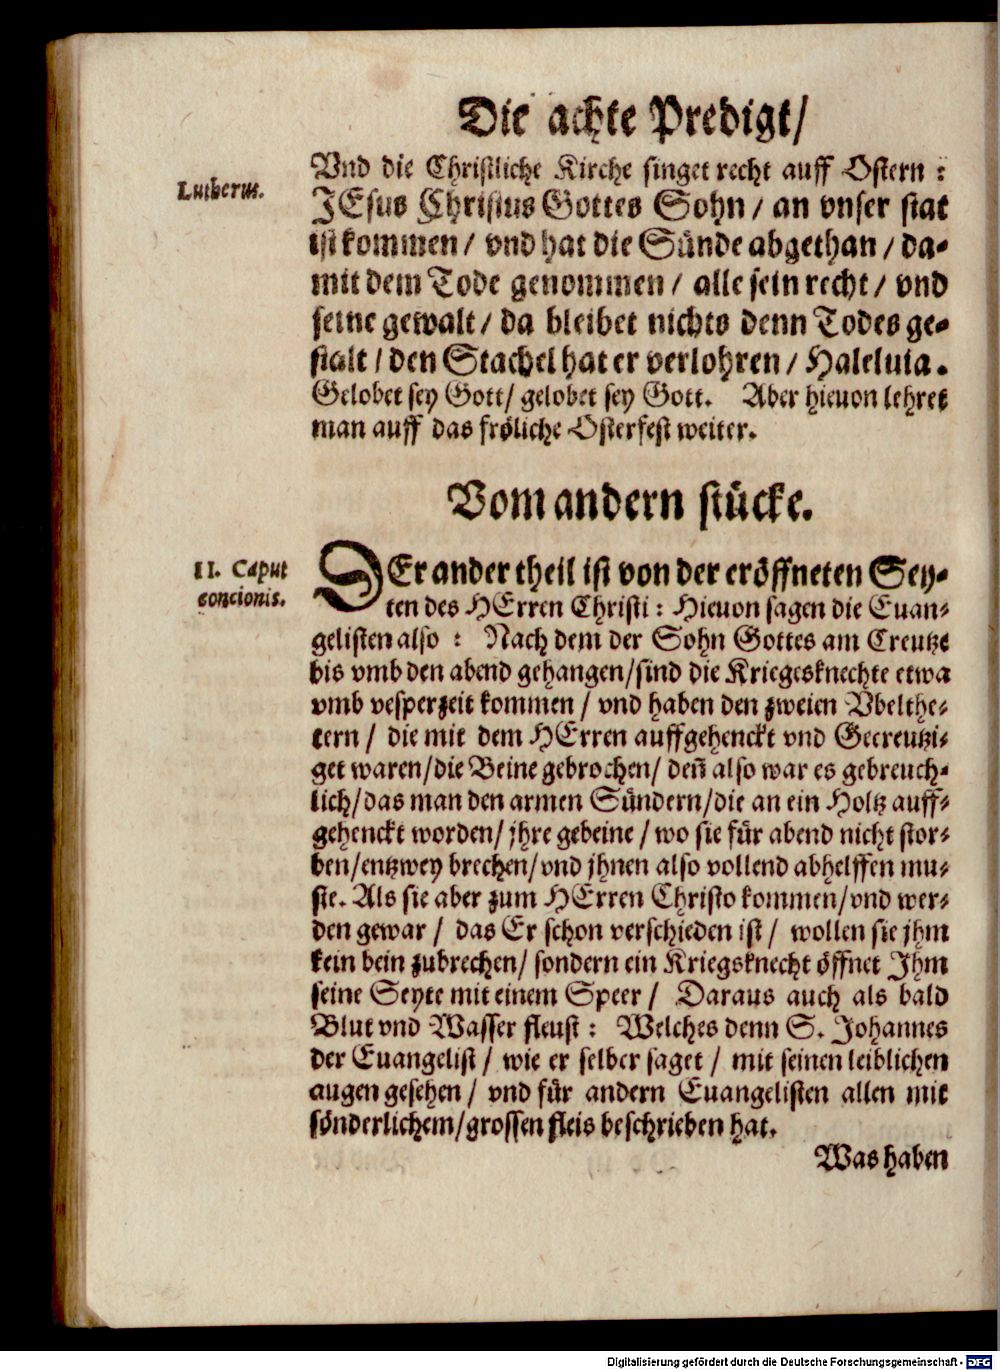 Die achte Predigt/
Lutherus.
Vnd die Christliche Kirche singet recht auff Ostern :
JEsus Christus Gottes Sohn / an vnser stat
ist kommen / vnd hat die Sünde abgethan / da-
mit dem Tode genommen / alle sein recht / vnd
seine gewalt / da bleibet nichts denn Todes ge-
stalt / den Stachel hat er verlohren / Haleluia.
Gelobet sey Gott/ gelobet sey Gott. Aber hieuon lehret
man auff das fröliche Osterfest weiter.
Vom andern stücke.
II. Caput
concionis.
DEr ander theil ist von der eröffneten Sey-
ten des HErren Christi : Hieuon sagen die Euan-
gelisten also : Nach dem der Sohn Gottes am Creutze
bis vmb den abend gehangen/sind die Kriegesknechte etwa
vmb vesperzeit kommen / vnd haben den zweien Vbelthe-
tern / die mit dem HErren auffgehenckt vnd Gecreutzi-
get waren/die Beine gebrochen/ deñ also war es gebreuch-
lich/das man den armen Sündern/die an ein Holtz auff-
gehenckt worden/ jhre gebeine / wo sie für abend nicht stor-
ben/entzwey brechen/vnd jhnen also vollend abhelffen mu-
ste. Als sie aber zum HErren Christo kommen/vnd wer-
den gewar / das Er schon verschieden ist / wollen sie jhm
kein bein zubrechen/ sondern ein Kriegsknecht öffnet Jhm
seine Seyte mit einem Speer / Daraus auch als bald
Blut vnd Wasser fleust : Welches denn S. Johannes
der Euangelist / wie er selber saget / mit seinen leiblichen
augen gesehen / vnd für andern Euangelisten allen mit
sönderlichem/grossen fleis beschrieben hat.
Was haben
Digitalisierung gefördert durch die Deutsche Forschungsgemeinschaft - DFG